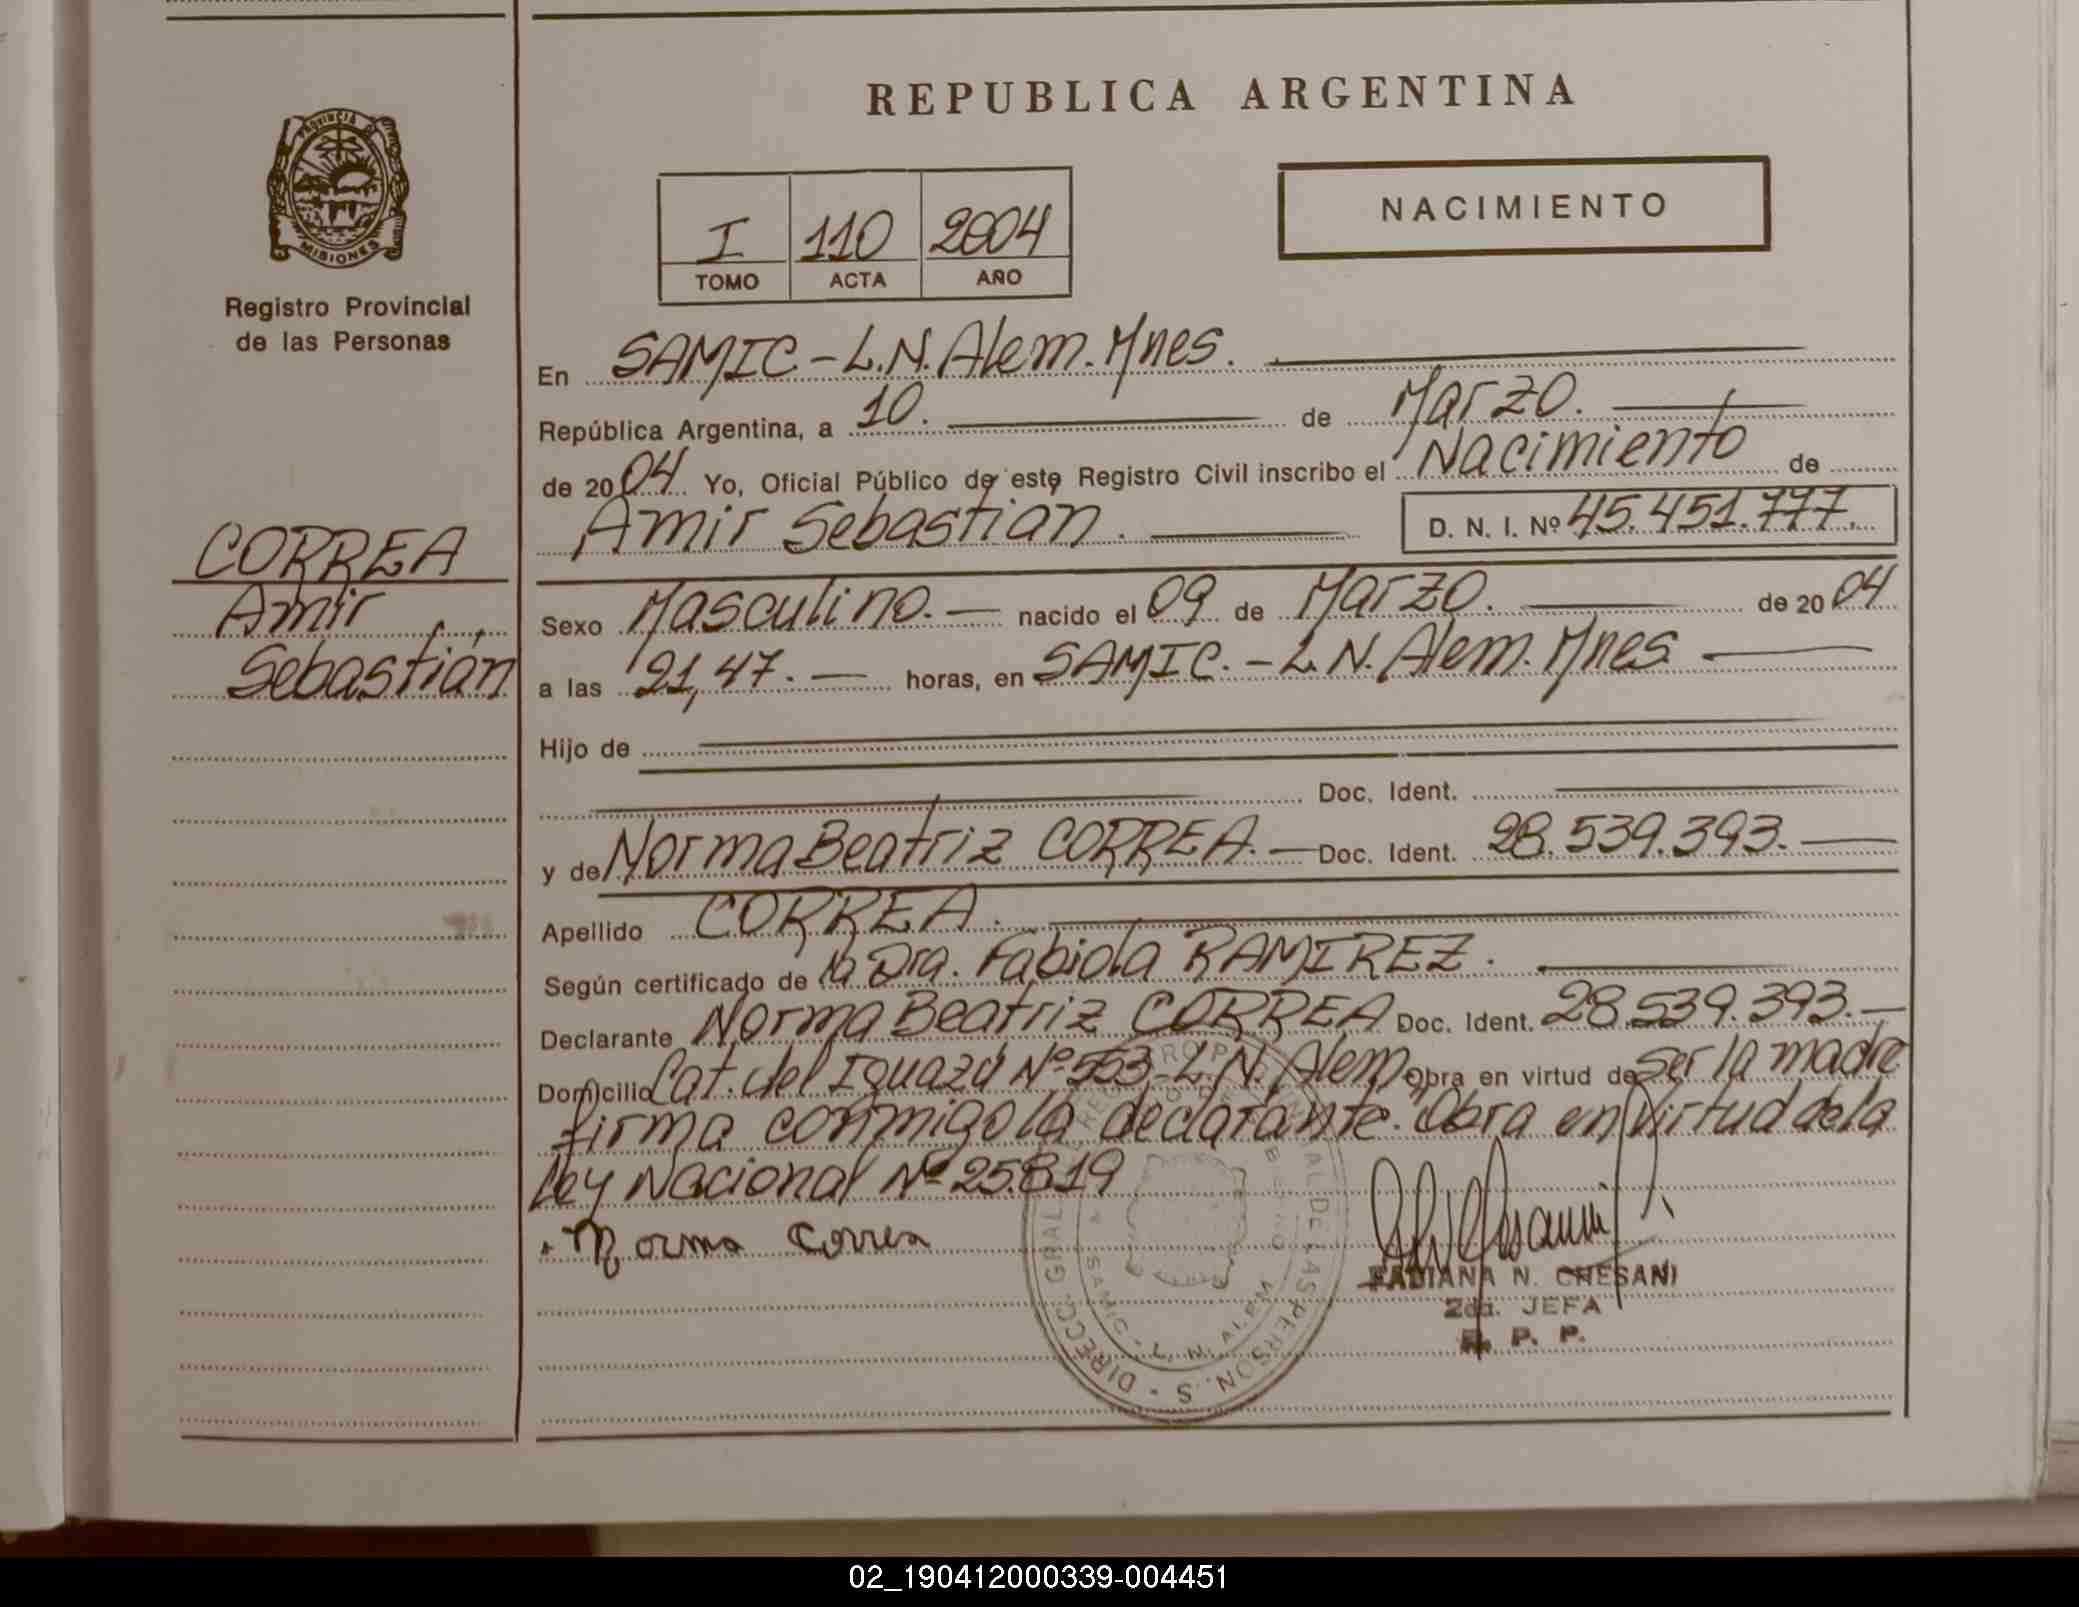 REPUBLICA ARGENTINA
PROVINCIA DE
MISIONES
Registro Provincial
de las Personas
I 110 2004
TOMO ACTA AÑO
NACIMIENTO
En SAMIC - L.N. Alem. Mnes.
República Argentina, a 10. de Marzo.
de 2004 Yo, Oficial Público de este Registro Civil inscribo el Nacimiento de
Amir Sebastian. D. N. I. Nº 45.451.777.
CORREA
Amir
Sebastián
Sexo Masculino. nacido el 09 de Marzo. de 2004
a las 21,47. horas, en SAMIC. - L.N. Alem. Mnes
Hijo de
Doc. Ident.
y de Norma Beatriz CORREA. Doc. Ident. 28.539.393.
Apellido CORREA.
Según certificado de la Dra. Fabiola RAMIREZ.
Declarante Norma Beatriz CORREA Doc. Ident. 28.539.393.
Domicilio Cat. del Iguazú Nº 553 - L.N. Alem Obra en virtud de ser la madre
firma conmigo la declarante. Obra en virtud de la
Ley Nacional Nº 25.819
Norma Correa
FABIANA N. CHESANI
2da. JEFA
R. P. P.
DIRECC. GRAL. DE LAS PERSON S
SAMIC - L. N. ALEM
02_190412000339-004451